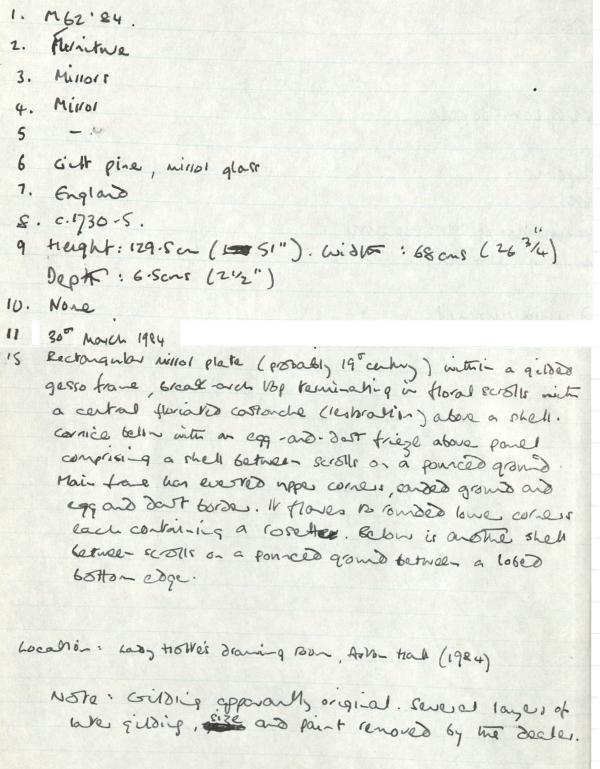 1. M62'84.
2. Furniture
3. Mirrors
4. Mirror
5 -
6 Gilt pine, mirror glass
7. England
8. c.1730-5.
9 Height: 129.5cm (51"). Width : 68cms (26 3/4")
Depth : 6.5cms (2 1/2")
10. None
11 30th March 1984
15 Rectangular mirror plate (probably 19th century) within a gilded
gesso frame, break-arch top terminating in floral scrolls with
a central floriated cartouche (restoration) above a shell.
Cornice below with an egg-and-dart frieze above panel
comprising a shell between scrolls on a pounced ground.
Main frame has everted upper corners, sanded ground and
egg and dart border. It flares to rounded lower corners
each containing a rosette. Below is another shell
between scrolls on a pounced ground between a lobed
bottom edge.
Location: Lady Holte's Drawing Room, Aston Hall (1984)
Note: Gilding apparantly original. Several layers of
later gilding, size and paint removed by the dealer.